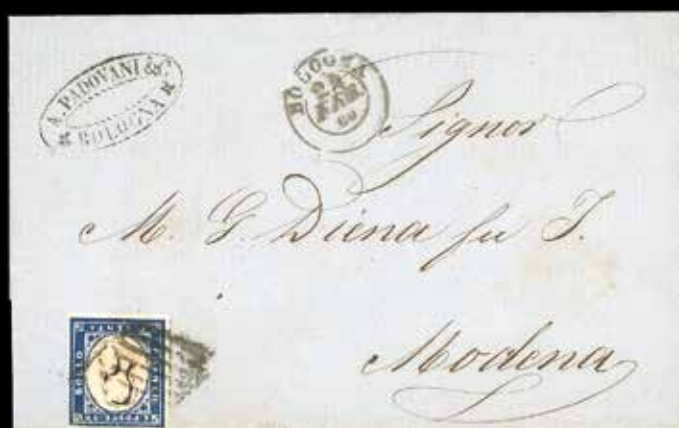 A. PADOVANI & C.
BOLOGNA
BOLOGNA
FEB
60
Signor
M. G. Diena fu J.
Modena
BOLLO